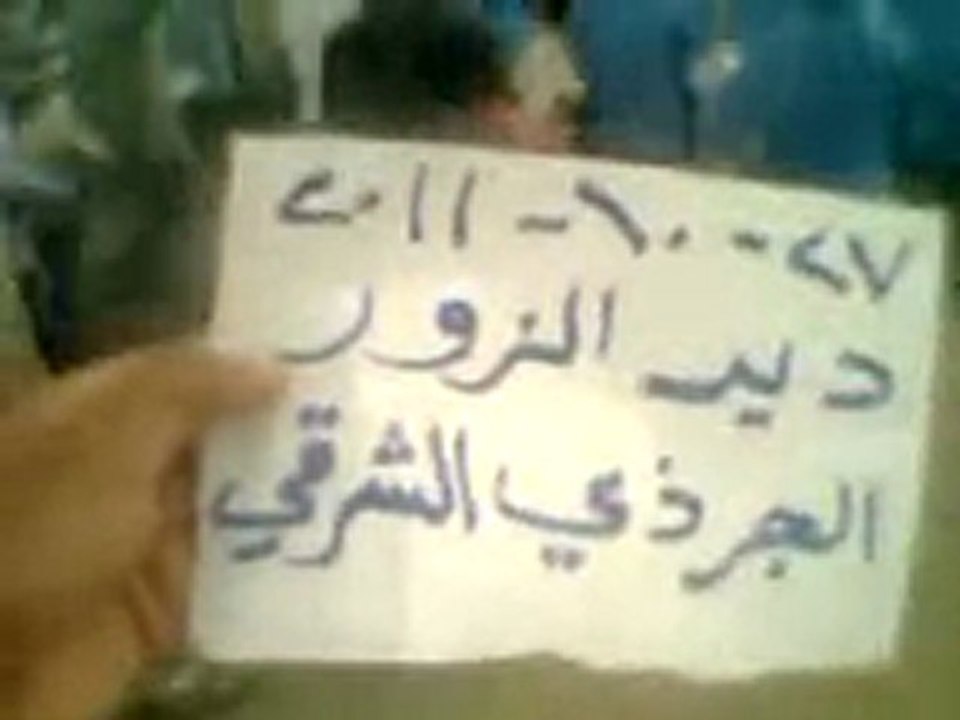 ٢٧-١٠-٢٠١١
دير الزور
الجرذي الشرقي